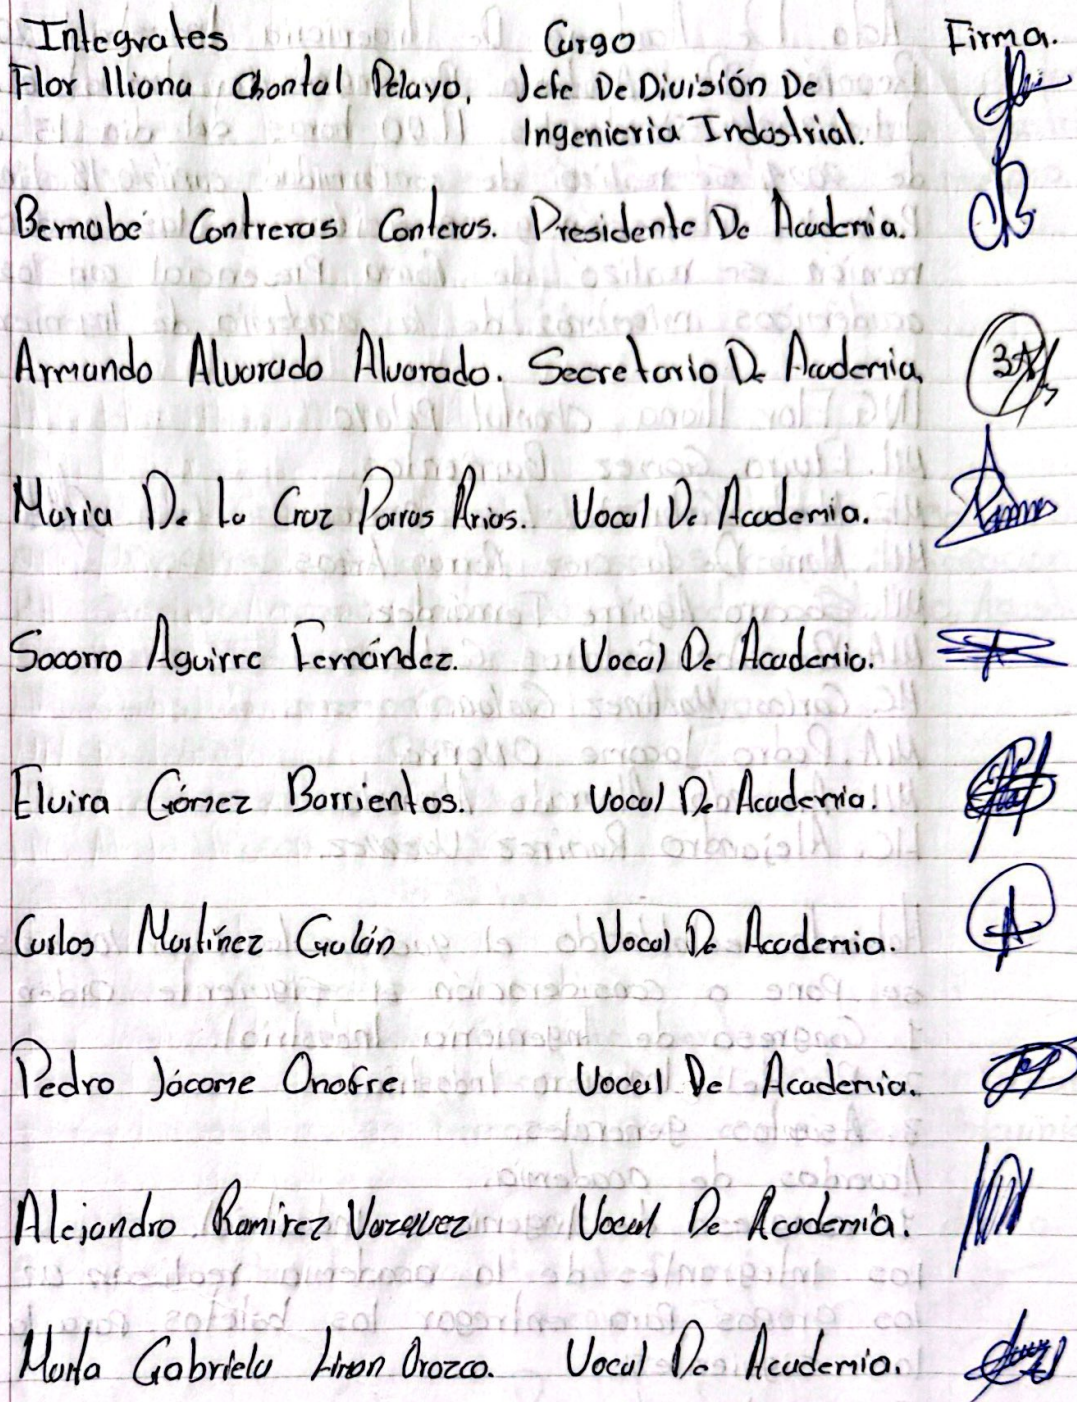 Integrates Cargo Firma.
Flor Iliana Chontal Pelayo. Jefe De División De
Ingenieria Industrial.
Bernabé Contreras Conteras. Presidente De Academia.
Armando Alvarado Alvarado. Secretario De Academia.
Maria De La Cruz Porras Arias. Vocal De Academia.
Socorro Aguirre Fernández. Vocal De Academia.
Elvira Gómez Barrientos. Vocal De Academia.
Carlos Martínez Galán Vocal De Academia.
Pedro Jácome Onofre Vocal De Academia.
Alejandro Ramirez Vazquez Vocal De Academia.
Marta Gabriela Limon Orozco. Vocal De Academia.